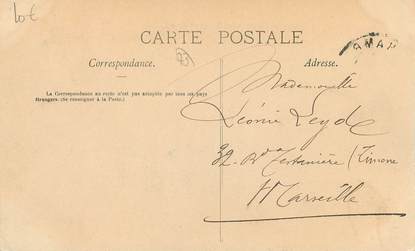 10€
CARTE POSTALE
Correspondance.
Adresse.
(La Correspondance au recto n'est pas acceptée par tous les pays
étrangers. (Se renseigner à la Poste.)
Mademoiselle
Léonie Leyde
32 - Bd (Timone
Marseille